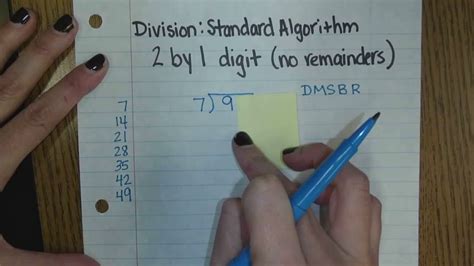 Division: Standard Algorithm
2 by 1 digit (no remainders)
7)9
DMSBR
7
14
21
28
35
42
49